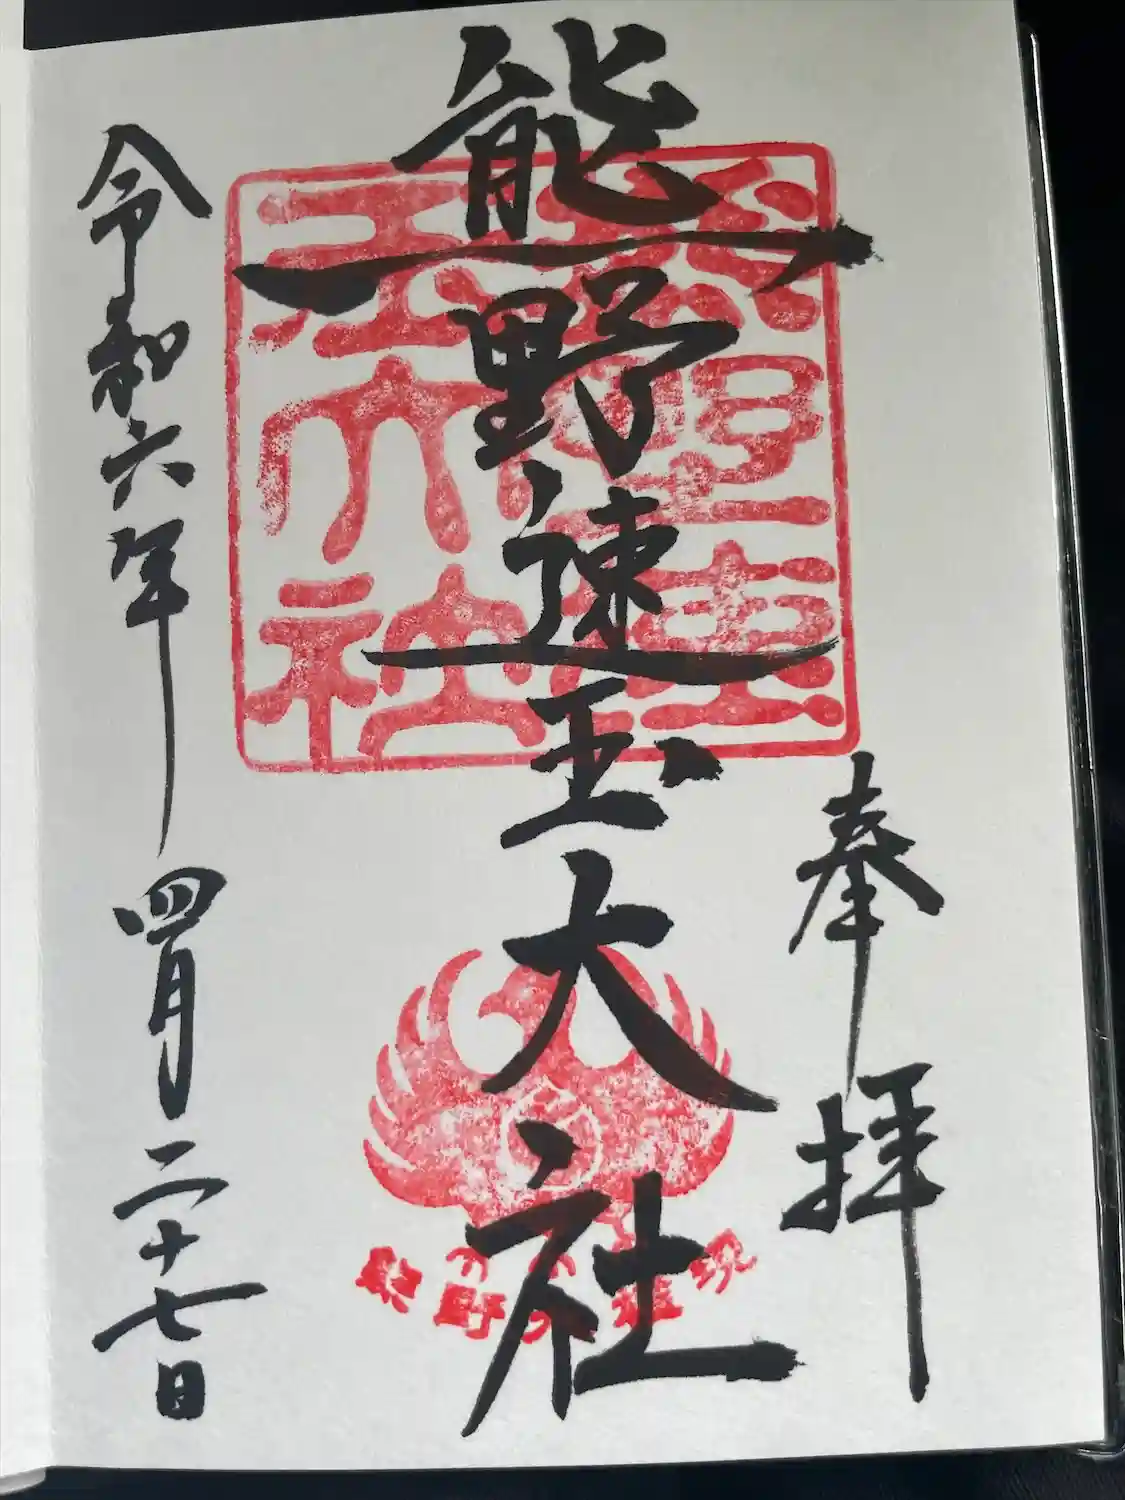 奉拝
熊野速玉大社
熊野速玉大社
令和六年四月二十七日